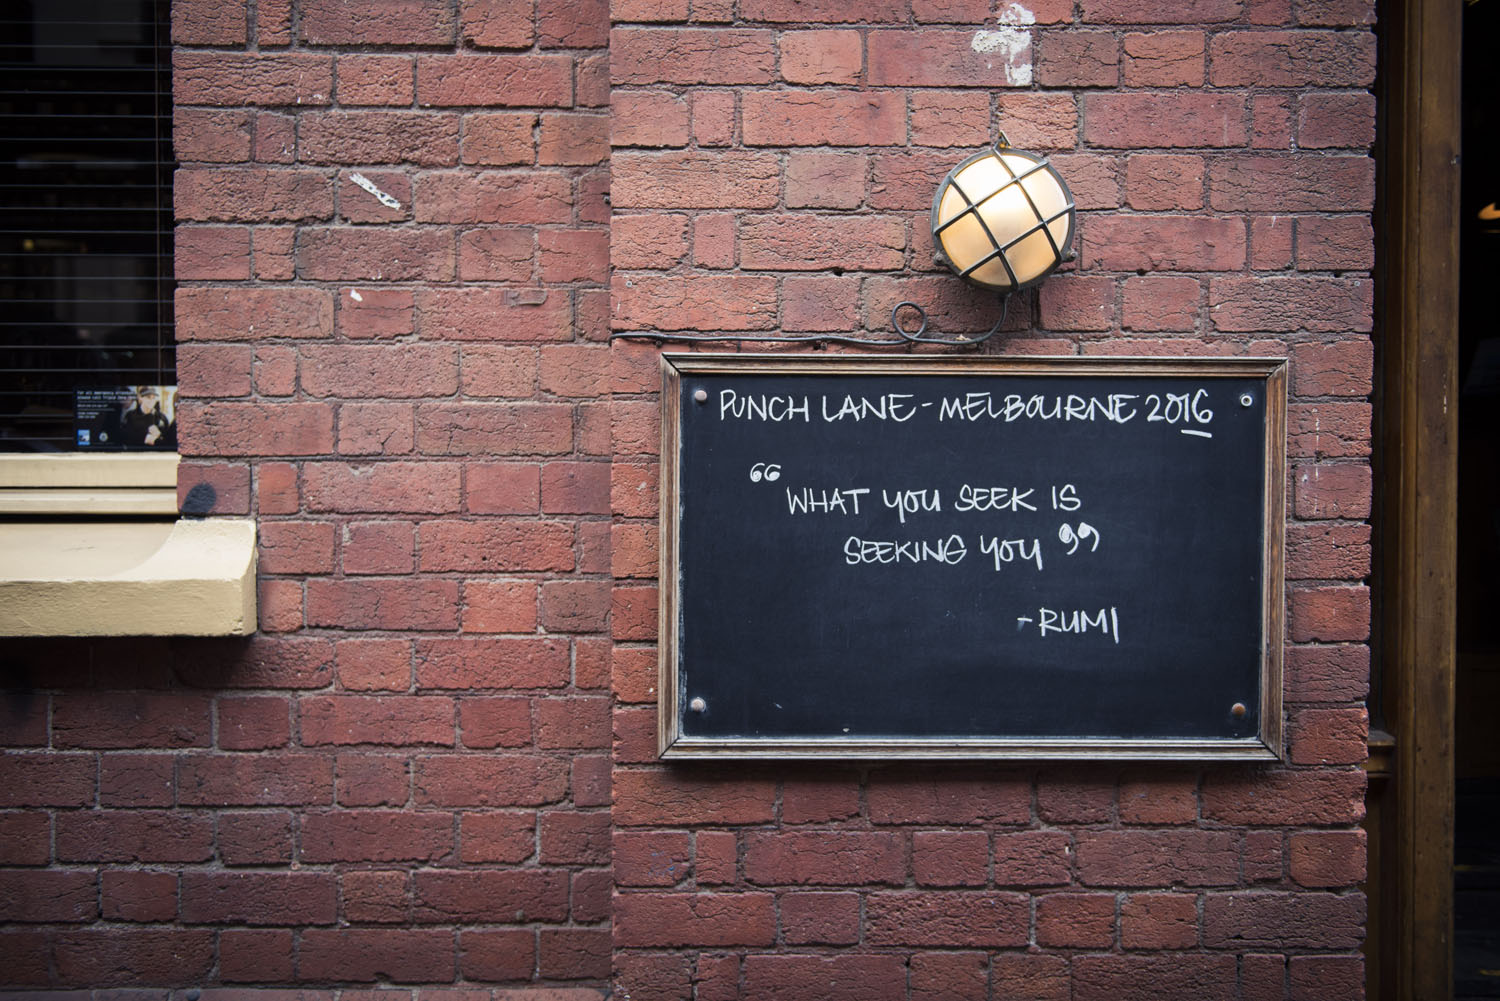 PUNCH LANE - MELBOURNE 2016
“WHAT YOU SEEK IS
SEEKING YOU”
- RUMI